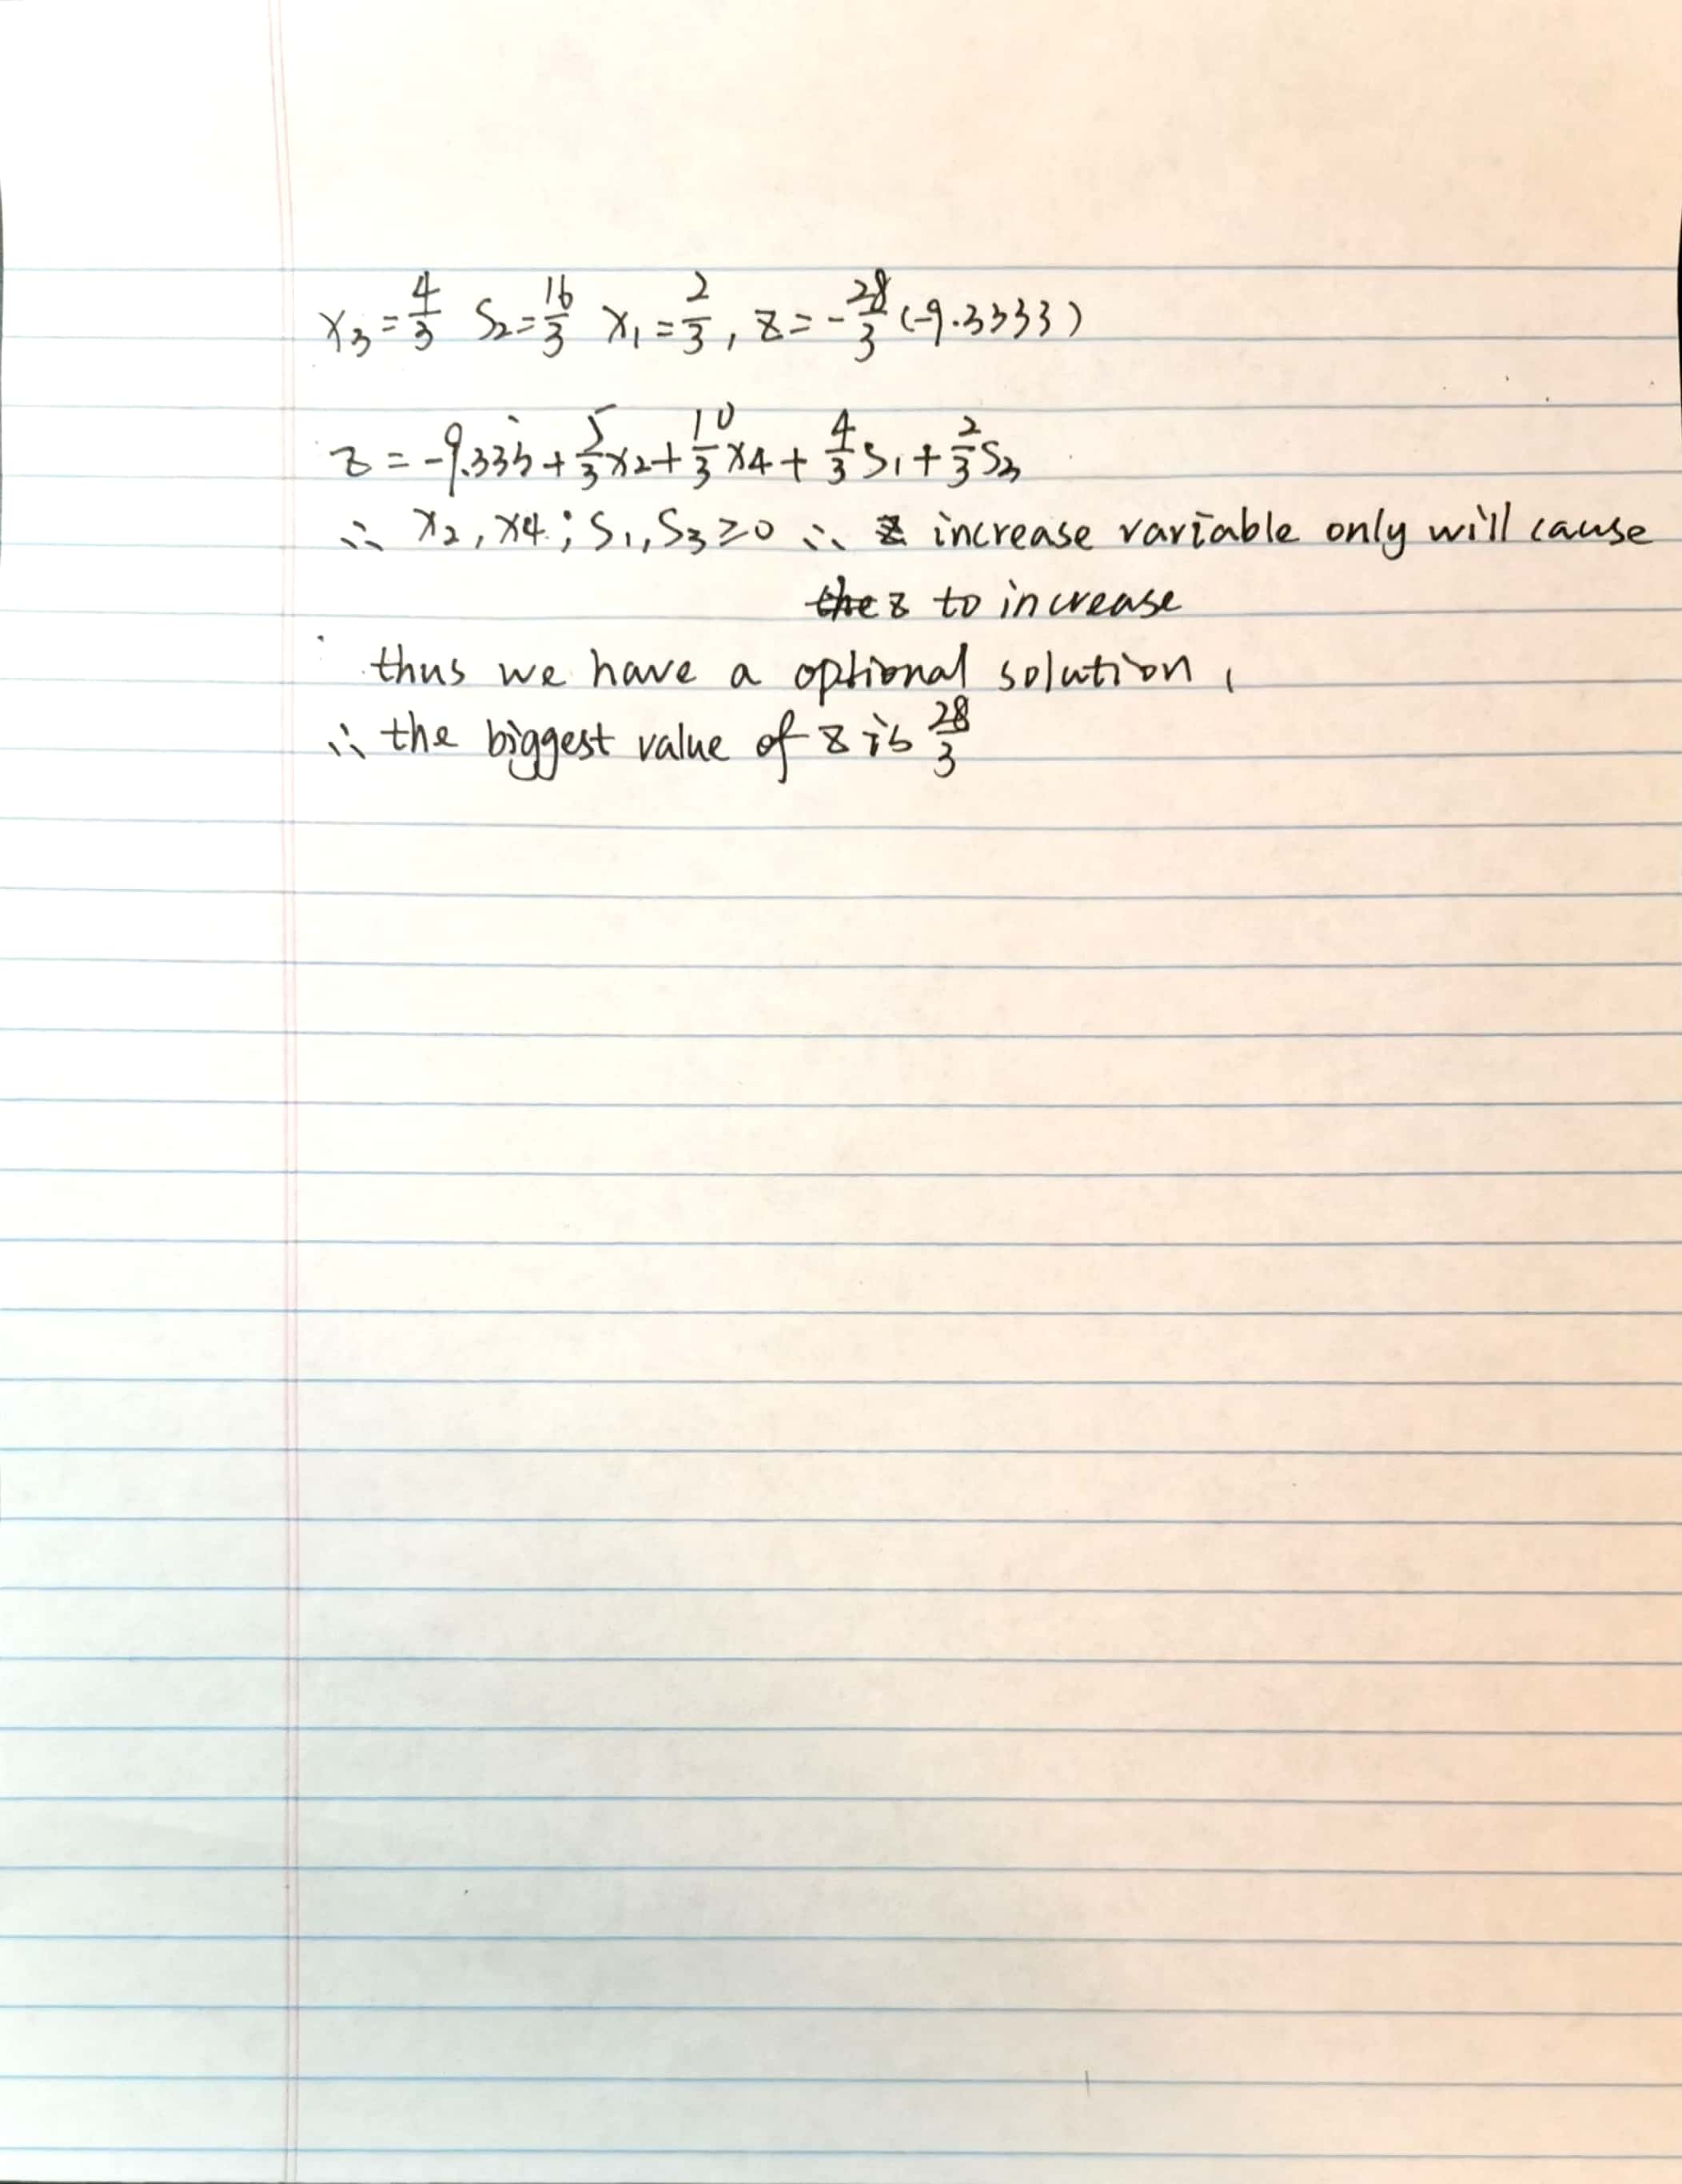 x₃ = 4/3 S₂ = 16/3 x₁ = 2/3, z = -28/3 (-9.3333)
z = -9.333 + 5/3 x₂ + 10/3 x₄ + 4/3 S₁ + 2/3 S₃
∴ x₂, x₄; S₁, S₃ ≥ 0 ∴ z increase variable only will cause
the z to increase
thus we have a optional solution,
∴ the biggest value of z is 28/3